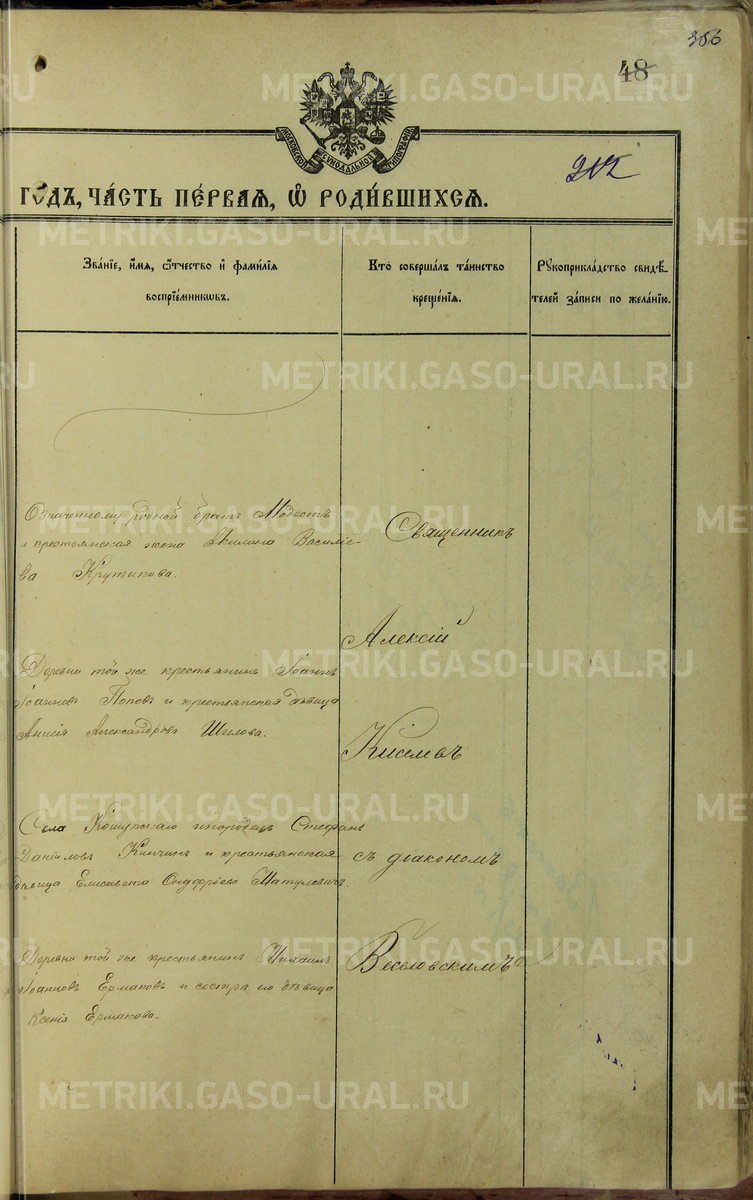 306
48
МОСКОВСКОЙ СѴНОДАЛЬНОЙ ТИПОГРАФІИ
212
ГО́ДЪ, ЧА́СТЬ ПЕ́РВАѦ, Ѽ РОДИ́ВШИХСѦ.
Зва́нїе, и҆́мѧ, ѻ҆́тчество и҆ фами́лїѧ
воспрїе́мникѡвъ.
Кто̀ соверша́лъ та́инство
креще́нїѧ.
Рꙋкоприкла́дство свидѣ́-
телей за́писи по жела́нїю.
Означенному родной братъ Модестъ
и крестьянская жена Акилина Василіе-
ва Крутикова.
Священникъ
Алексій
Деревни той же крестьянинъ Іоаннъ
Іоанновъ Поповъ и крестьянская дѣвица
Анисія Александрова Шилова.
Киселевъ
Села Кошукскаго инородецъ Стефанъ
Даниловъ Кинчинъ и крестьянская
дѣвица Елисавета Онуфріева Матулевичъ.
съ діакономъ
Деревни той же крестьянинъ Михаилъ
Іоанновъ Ермаковъ и сестра его дѣвица
Ксенія Ермакова.
Веселовскимъ
METRIKI.GASO-URAL.RU